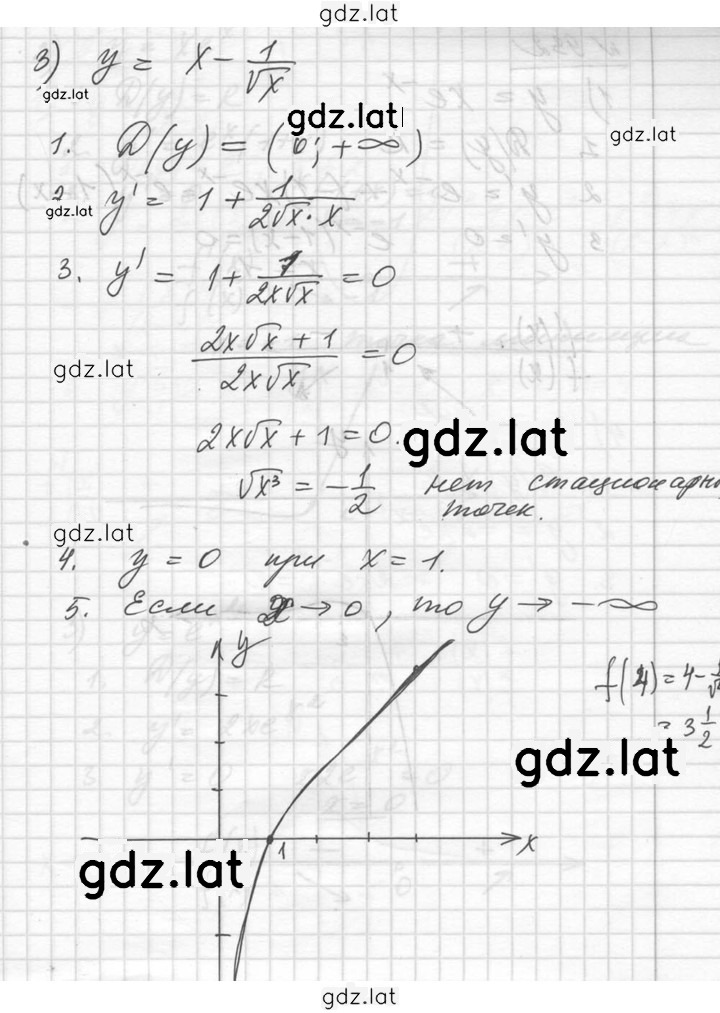 gdz.lat
3) y = x - 1/√x
gdz.lat
gdz.lat
gdz.lat
1. D(y) = (0; +∞)
2 y' = 1 + 1/(2√x · x)
gdz.lat
3. y' = 1 + 1/(2x√x) = 0
(2x√x + 1)/(2x√x) = 0
gdz.lat
2x√x + 1 = 0.
gdz.lat
√x³ = - 1/2 нет стационарн
точек.
gdz.lat
4. y = 0 при x = 1.
5. Если x → 0, то y → -∞
y
f(4) = 4 - 1/√
= 3 1/2
gdz.lat
1
x
gdz.lat
gdz.lat